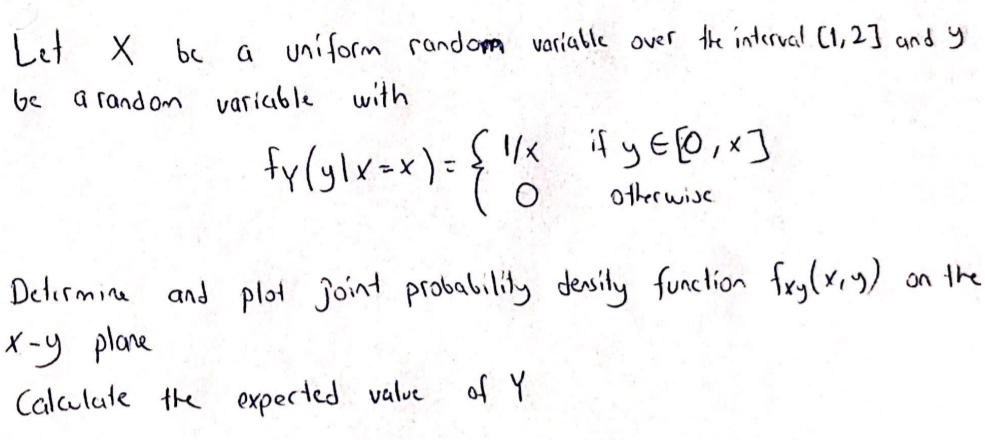 Let X be a uniform random variable over the interval [1,2] and y
be a random variable with
fY(y|x=x) = { 1/x if y ∈ [0,x]
0 otherwise
Determine and plot joint probability density function fxy(x,y) on the
x-y plane
Calculate the expected value of Y